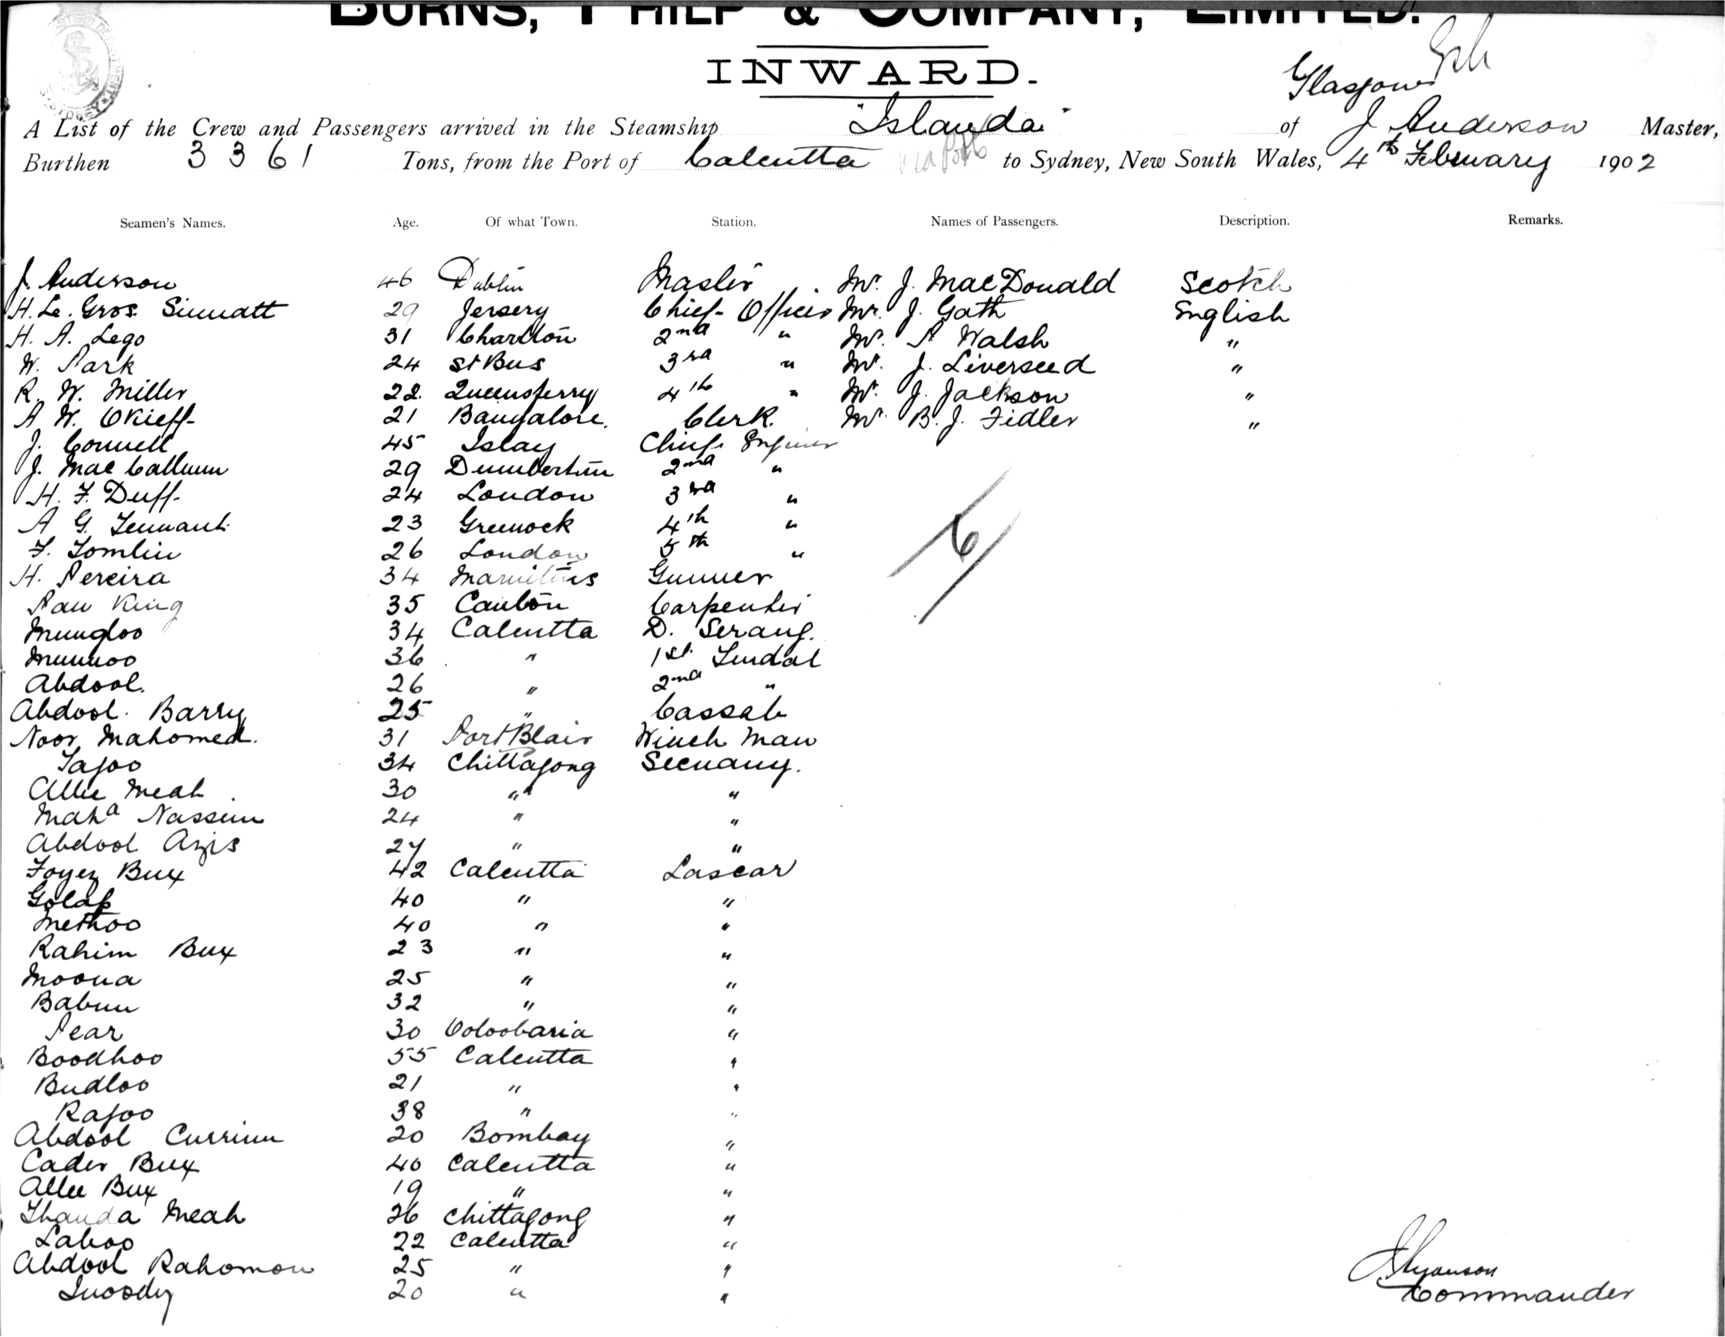 BURNS, PHILP & COMPANY, LIMITED.
INWARD.
Glasgow
A List of the Crew and Passengers arrived in the Steamship "Islanda" of J Anderson Master,
Burthen 3361 Tons, from the Port of Calcutta via Ports to Sydney, New South Wales, 4th February 1902
Seamen's Names. Age. Of what Town. Station. Names of Passengers. Description. Remarks.
J. Anderson 46 Dublin Master Mr. J. MacDonald Scotch
H. Le. Gros. Sinnatt 29 Jersery Chief Officer Mr. J. Gath English
H. A. Lego 31 Charlton 2nd " Mr. A Walsh "
W. Park 24 St Bus 3rd " Mr. J. Liverseed "
R. W. Miller 22 Queensferry 4th " Mr. J. Jackson "
A W. OKieff 21 Bangalore. Clerk. Mr. B. J. Fidler "
J. Connell 45 Islay Chief Engineer
J. MacCallum 29 Dumbertun 2nd "
H. F. Duff 24 London 3rd "
A G. Tennant 23 Greenock 4th "
F. Tomlin 26 London 5th "
6
H. Pereira 34 Mauritius Gunner
Paw King 35 Canton Carpenter
Mungloo 34 Calcutta D. Serang.
Munnoo 36 " 1st Tindal
Abdool. 26 " 2nd "
Abdool. Barry 25 " Cassab
Noor Mahomed. 31 Port Blair Winch Man
Tajoo 34 Chittagong Secunny.
Allie Meah 30 " "
Maha Nassim 24 " "
Abdool Azis 27 " "
Foyez Bux 42 Calcutta Lascar
Golap 40 " "
Methoo 40 " "
Rahim Bux 23 " "
Moona 25 " "
Babuu 32 " "
Pear 30 Ooloobaria "
Boodhoo 55 Calcutta "
Budloo 21 " "
Rajoo 38 " "
Abdool Currim 20 Bombay "
Cader Bux 40 Calcutta "
Allee Bux 19 " "
Thanda Meah 26 Chittagong "
Laboo 22 Calcutta "
Abdool Rahomon 25 " "
20 " "
J. Anderson
Commander